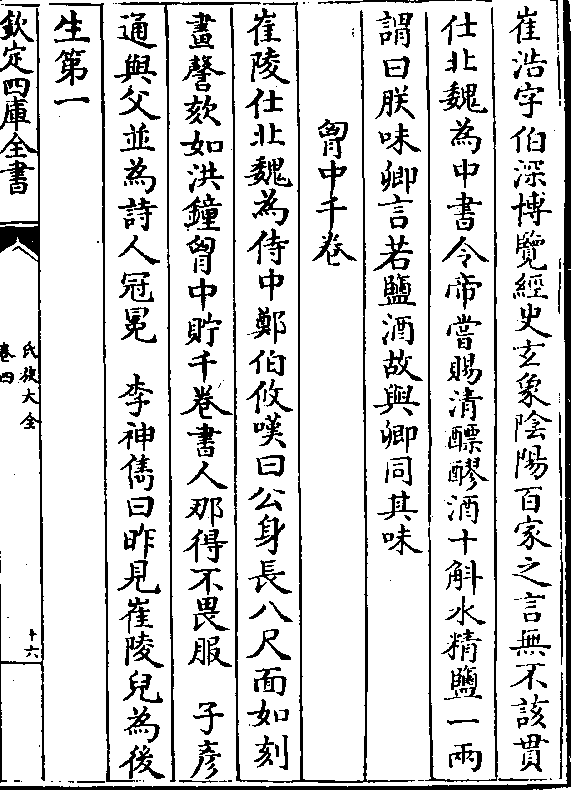 崔浩字伯深博覽經史玄象陰陽百家之言無不該貫
仕北魏為中書令帝嘗賜清醥醪酒十斛水精鹽一兩
謂曰朕味卿言若鹽酒故與卿同其味
胷中千卷
崔陵仕北魏為侍中鄭伯攸嘆曰公身長八尺面如刻
畫謦欬如洪鐘胷中貯千卷書人那得不畏服 子彥
通與父並為詩人冠冕 李神儁曰昨見崔陵兒為後
生第一
欽定四庫全書
氏族大全
卷四
十六